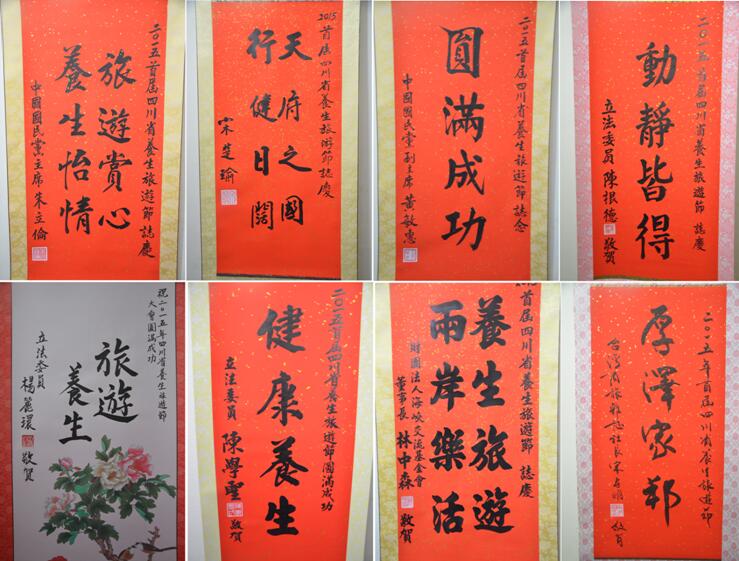 二〇一五首屆四川省養生旅遊節 誌慶
旅遊賞心
養生怡情
中國國民黨主席 朱立倫
2015首屆四川省養生旅遊節誌慶
天府之國
行健日闊
宋楚瑜
二〇一五首屆四川省養生旅遊節誌念
圓滿成功
中國國民黨副主席 黃敏惠
二〇一五首屆四川省養生旅遊節 誌慶
動靜皆得
立法委員 陳根德 敬賀
祝二〇一五年四川省養生旅遊節
大會圓滿成功
旅遊
養生
立法委員 楊麗環 敬賀
二〇一五首屆四川省養生旅遊節圓滿成功
健康養生
立法委員 陳學聖 敬賀
2015首屆四川省養生旅遊節 誌慶
養生旅遊
兩岸樂活
財團法人海峽交流基金會
董事長 林中森 敬賀
二〇一五年首屆四川省養生旅遊節
厚澤家邦
台灣商旅雜誌社長宋 敬賀